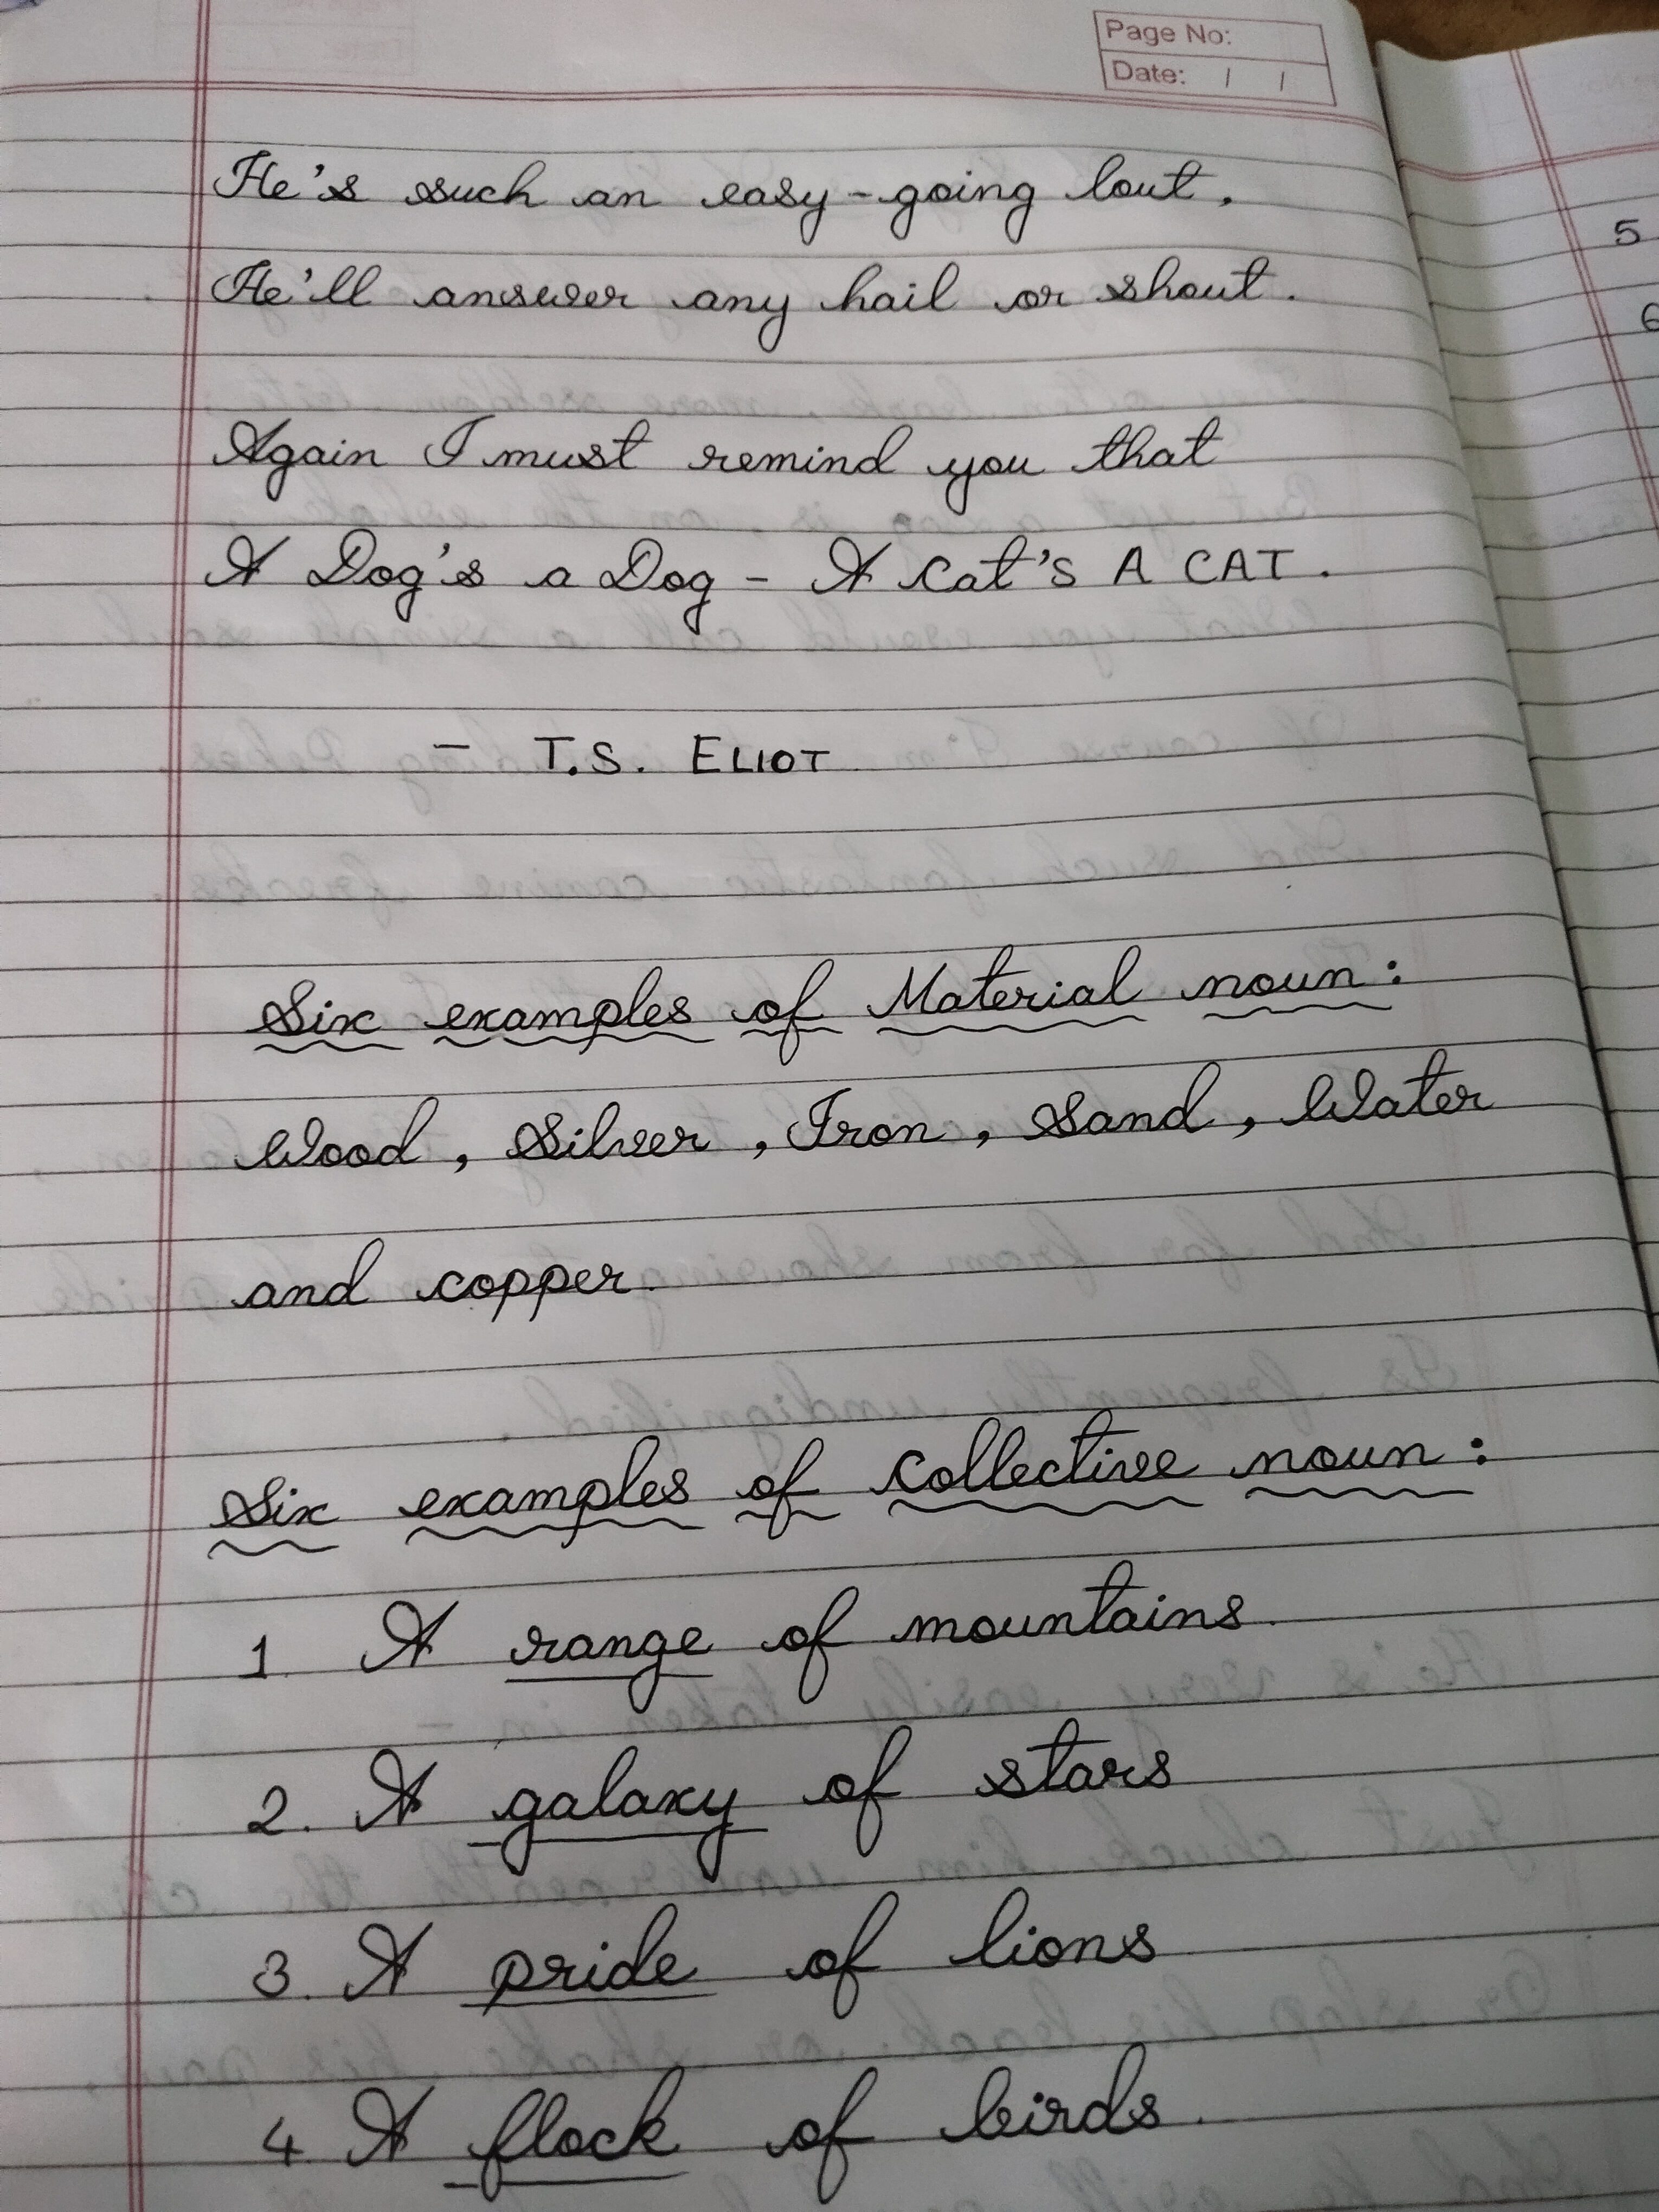 Page No:
Date: / /
He's such an easy-going lout,
He'll answer any hail or shout.
Again I must remind you that
A Dog's a Dog - A Cat'S A CAT.
- T.S. ELIOT
Six examples of Material noun:
Wood, Silver, Iron, Sand, Water
and copper.
Six examples of collective noun:
1. A range of mountains.
2. A galaxy of stars
3. A pride of lions
4. A flock of birds.
5
6